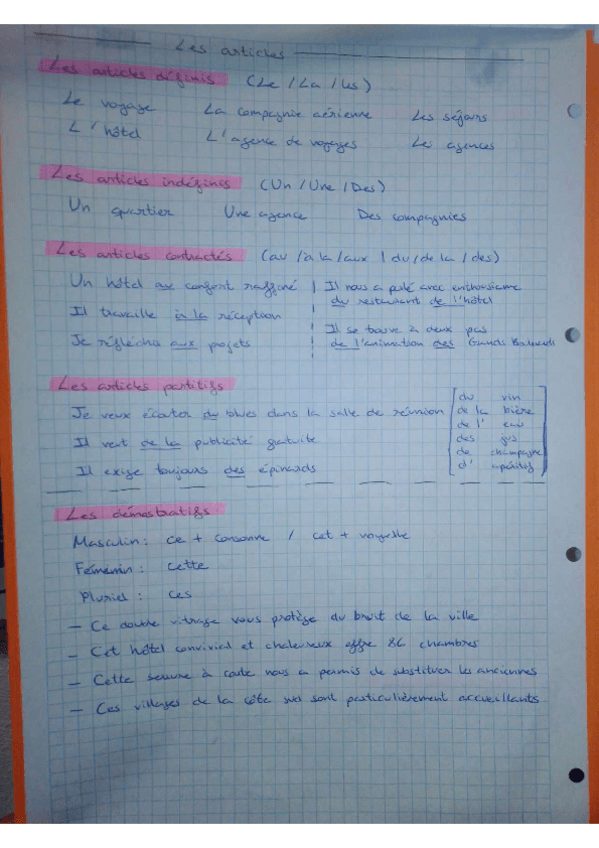 Les articles
Les articles définis (Le / La / Les)
Le voyage La compagnie aérienne Les séjours
L'hôtel L'agence de voyages Les agences
Les articles indéfinis (Un / Une / Des)
Un quartier Une agence Des compagnies
Les articles contractés (au / à la / aux / du / de la / des)
Un hôtel au confort raffiné
Il travaille à la réception
Je réfléchis aux projets
Il nous a parlé avec enthousiasme
du restaurant de l'hôtel
Il se trouve à deux pas
de l'animation des Grands Boulevards
Les articles partitifs
Je veux écouter du blues dans la salle de réunion
Il veut de la publicité gratuite
Il exige toujours des épinards
du vin
de la bière
de l' eau
des jus
de champagne
d' apéritif
Les démostratifs
Masculin: ce + consonne / cet + voyelle
Fémenin: cette
Pluriel: ces
- Ce double vitrage vous protège du bruit de la ville
- Cet hôtel convivial et chaleureux offre 86 chambres
- Cette serrure à carte nous a permis de substituer les anciennes
- Ces villages de la côte sud sont particulièrement accueillants